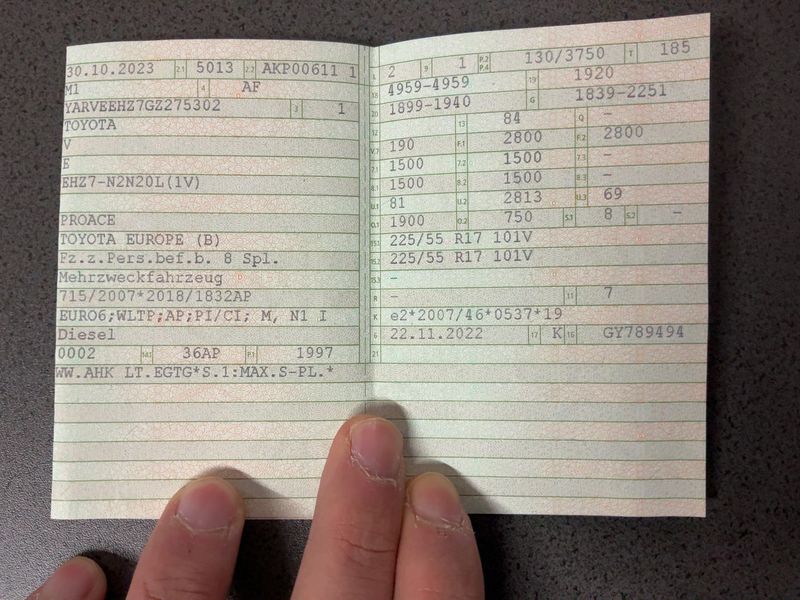 30.10.2023 2.1 5013 2.2 AKP00611 1
M1 4 AF
YARVEEHZ7GZ275302 3 1
TOYOTA
V
E
EHZ7-N2N20L(1V)
PROACE
TOYOTA EUROPE (B)
Fz.z.Pers.bef.b. 8 Spl.
Mehrzweckfahrzeug
715/2007*2018/1832AP
EURO6;WLTP;AP;PI/CI; M, N1 I
Diesel
0002 14.1 36AP P.1 1997
WW.AHK LT.EGTG*S.1:MAX.S-PL.*
L 2 9 1 P.2 P.4 130/3750 T 185
18 4959-4959 19 1920
20 1899-1940 G 1839-2251
12 13 84 Q -
V.7 190 F.1 2800 F.2 2800
7.1 1500 7.2 1500 7.3 -
8.1 1500 8.2 1500 8.3 -
U.1 81 U.2 2813 U.3 69
O.1 1900 O.2 750 S.1 8 S.2 -
15.1 225/55 R17 101V
15.2 225/55 R17 101V
15.3 -
R - 11 7
K e2*2007/46*0537*19
6 22.11.2022 17 K 16 GY789494
21